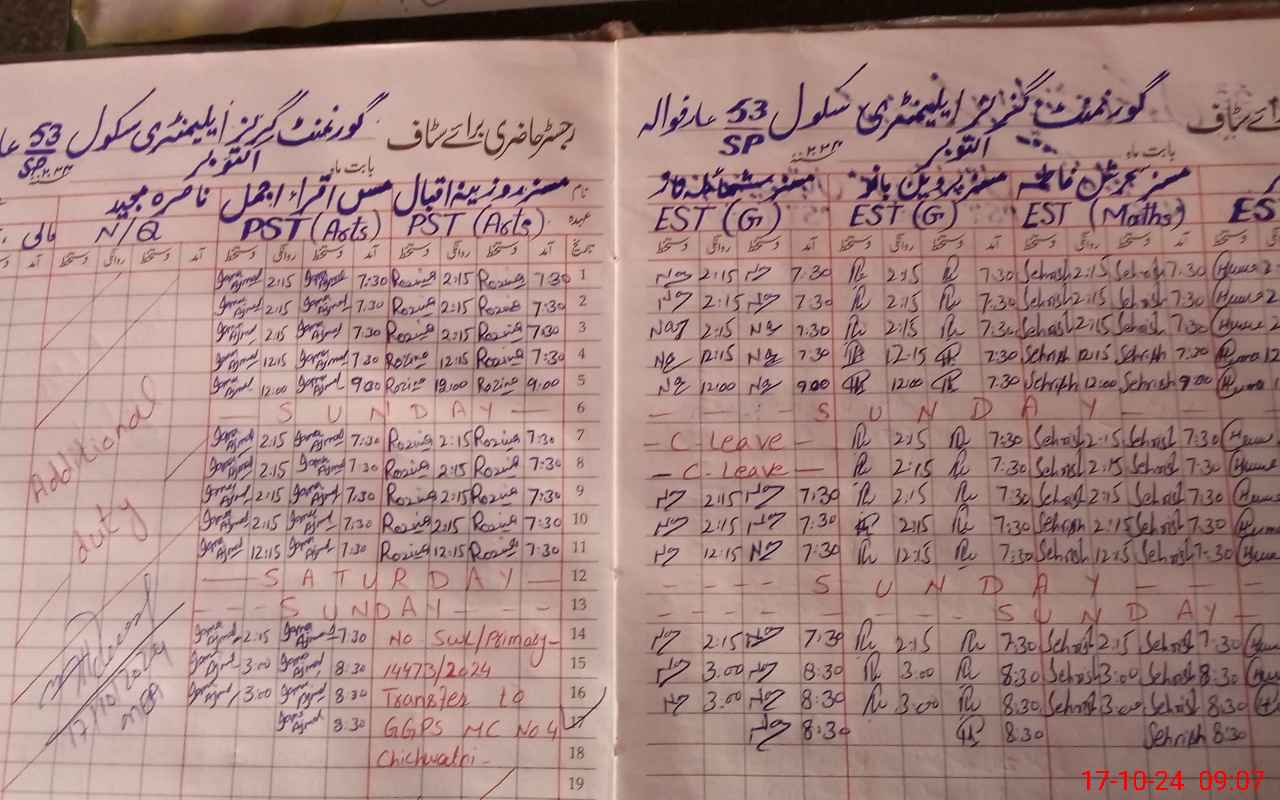 رجسٹر حاضری برائے سٹاف گورنمنٹ گرلز ایلیمنٹری سکول 53/SP
بابت ماہ اکتوبر
نام مسز روزینہ اقبال مس اقراء اجمل ناصرہ مجید
عہدہ PST (Arts) PST (Arts) N/Q مالی
تاریخ آمد دستخط روانگی دستخط آمد دستخط روانگی دستخط آمد دستخط روانگی دستخط
1 7:30 Rozina 2:15 Rozina 7:30 Iqra Ajmal 2:15 Iqra Ajmal
2 7:30 Rozina 2:15 Rozina 7:30 Iqra Ajmal 2:15 Iqra Ajmal
3 7:30 Rozina 2:15 Rozina 7:30 Iqra Ajmal 2:15 Iqra Ajmal
4 7:30 Rozina 12:15 Rozina 7:30 Iqra Ajmal 12:15 Iqra Ajmal
5 9:00 Rozina 12:00 Rozina 9:00 Iqra Ajmal 12:00 Iqra Ajmal
6 — SUNDAY —
7 7:30 Rozina 2:15 Rozina 7:30 Iqra Ajmal 2:15 Iqra Ajmal
8 7:30 Rozina 2:15 Rozina 7:30 Iqra Ajmal 2:15 Iqra Ajmal
9 7:30 Rozina 2:15 Rozina 7:30 Iqra Ajmal 2:15 Iqra Ajmal
10 7:30 Rozina 2:15 Rozina 7:30 Iqra Ajmal 2:15 Iqra Ajmal
11 7:30 Rozina 12:15 Rozina 7:30 Iqra Ajmal 12:15 Iqra Ajmal
12 — SATURDAY —
13 - - - SUNDAY - - -
14 No /Primary- 7:30 Iqra Ajmal 2:15 Iqra Ajmal
15 14473/2024 8:30 Iqra Ajmal 3:00 Iqra Ajmal
16 Transfer to 8:30 Iqra Ajmal 3:00 Iqra Ajmal
17 GGPS MC No 4 8:30 Iqra Ajmal
18 Chichwatni-
19
Additional
duty
17/10/2024
MEA
برائے سٹاف گورنمنٹ گرلز ایلیمنٹری سکول 53/SP عارفوالہ
بابت ماہ اکتوبر
مسز سحرش فاطمہ مسز پروین بانو
EST (Maths) EST (G) EST (G)
آمد دستخط روانگی دستخط آمد دستخط روانگی دستخط آمد دستخط روانگی دستخط
Huma 7:30 Sehrish 2:15 Sehrish 7:30 2:15 7:30 2:15
Huma 7:30 Sehrish 2:15 Sehrish 7:30 2:15 7:30 2:15
Huma 7:30 Sehrish 2:15 Sehrish 7:30 2:15 7:30 2:15
Huma 7:30 Sehrish 12:15 Sehrish 7:30 12:15 7:30 12:15
Huma 9:00 Sehrish 12:00 Sehrish 7:30 12:00 9:00 12:00
— SUNDAY —
Huma 7:30 Sehrish 2:15 Sehrish 7:30 2:15 — C-Leave —
Huma 7:30 Sehrish 2:15 Sehrish 7:30 2:15 — C-Leave —
Huma 7:30 Sehrish 2:15 Sehrish 7:30 2:15 7:30 2:15
Huma 7:30 Sehrish 2:15 Sehrish 7:30 2:15 7:30 2:15
Huma 7:30 Sehrish 12:15 Sehrish 7:30 12:15 7:30 12:15
- - - - SUNDAY - -
SUNDAY -
7:30 Sehrish 2:15 Sehrish 7:30 2:15 7:30 2:15
8:30 Sehrish 3:00 Sehrish 8:30 3:00 8:30 3:00
8:30 Sehrish 3:00 Sehrish 8:30 3:00 8:30 3:00
8:30 Sehrish 8:30 8:30
17-10-24 09:07